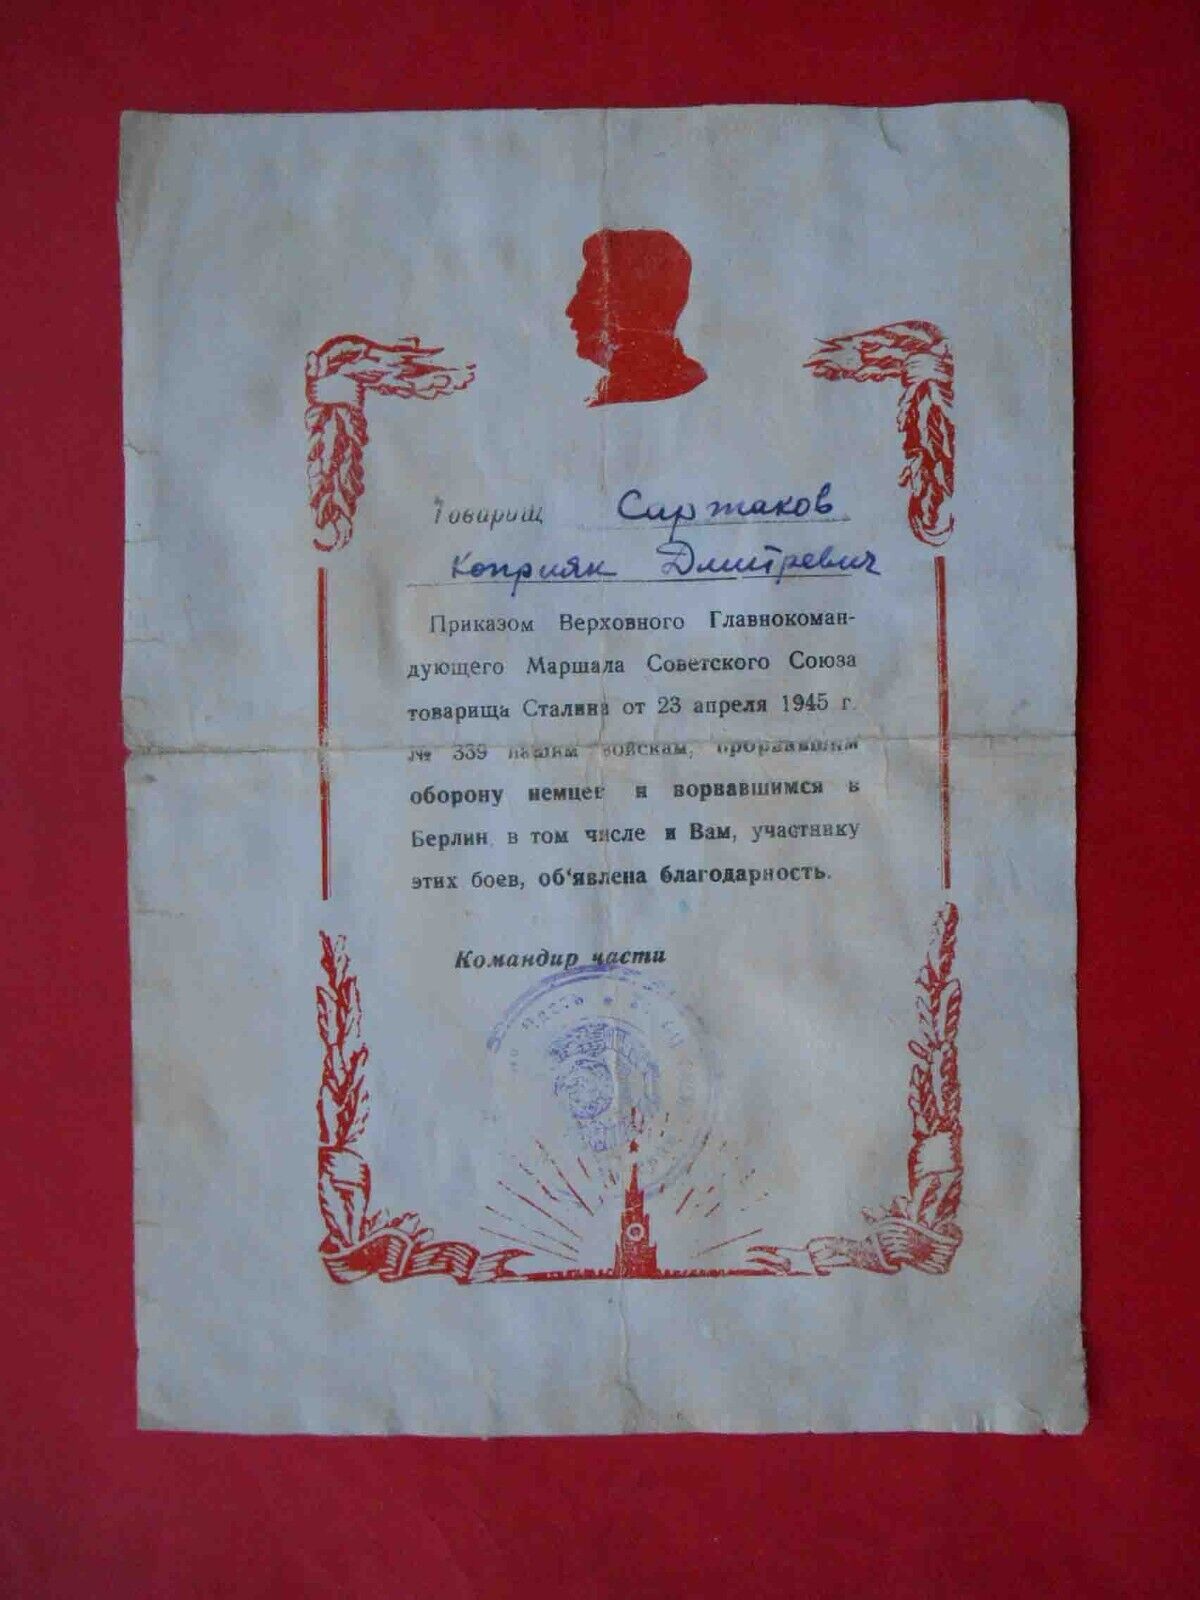 Товарищ Сартаков
Коприян Дмитревич
Приказом Верховного Главнокоман-
дующего Маршала Советского Союза
товарища Сталина от 23 апреля 1945 г.
№ 339 нашим войскам, прорвавшим
оборону немцев и ворвавшимся в
Берлин, в том числе и Вам, участнику
этих боев, об'явлена благодарность.
Командир части